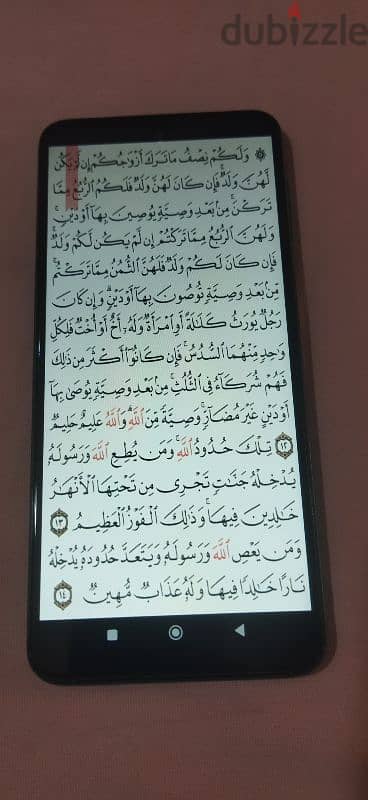 dubizzle
۞ وَلَكُمْ نِصْفُ مَا تَرَكَ أَزْوَٰجُكُمْ إِن لَّمْ يَكُن
لَّهُنَّ وَلَدٌ ۚ فَإِن كَانَ لَهُنَّ وَلَدٌ فَلَكُمُ ٱلرُّبُعُ مِمَّا
تَرَكْنَ ۚ مِنۢ بَعْدِ وَصِيَّةٍ يُوصِينَ بِهَآ أَوْ دَيْنٍ ۚ
وَلَهُنَّ ٱلرُّبُعُ مِمَّا تَرَكْتُمْ إِن لَّمْ يَكُن لَّكُمْ وَلَدٌ ۚ
فَإِن كَانَ لَكُمْ وَلَدٌ فَلَهُنَّ ٱلثُّمُنُ مِمَّا تَرَكْتُم ۚ
مِّنۢ بَعْدِ وَصِيَّةٍ تُوصُونَ بِهَآ أَوْ دَيْنٍ ۗ وَإِن كَانَ
رَجُلٌ يُورَثُ كَلَٰلَةً أَوِ ٱمْرَأَةٌ وَلَهُۥٓ أَخٌ أَوْ أُخْتٌ فَلِكُلِّ
وَٰحِدٍ مِّنْهُمَا ٱلسُّدُسُ ۚ فَإِن كَانُوٓا۟ أَكْثَرَ مِن ذَٰلِكَ
فَهُمْ شُرَكَآءُ فِى ٱلثُّلُثِ ۚ مِنۢ بَعْدِ وَصِيَّةٍ يُوصَىٰ بِهَآ
أَوْ دَيْنٍ غَيْرَ مُضَآرٍّ ۚ وَصِيَّةً مِّنَ ٱللَّهِ ۗ وَٱللَّهُ عَلِيمٌ حَلِيمٌ
١٢ تِلْكَ حُدُودُ ٱللَّهِ ۚ وَمَن يُطِعِ ٱللَّهَ وَرَسُولَهُۥ
يُدْخِلْهُ جَنَّٰتٍ تَجْرِى مِن تَحْتِهَا ٱلْأَنْهَٰرُ
خَٰلِدِينَ فِيهَا ۚ وَذَٰلِكَ ٱلْفَوْزُ ٱلْعَظِيمُ ١٣
وَمَن يَعْصِ ٱللَّهَ وَرَسُولَهُۥ وَيَتَعَدَّ حُدُودَهُۥ يُدْخِلْهُ
نَارًا خَٰلِدًا فِيهَا وَلَهُۥ عَذَابٌ مُّهِينٌ ١٤